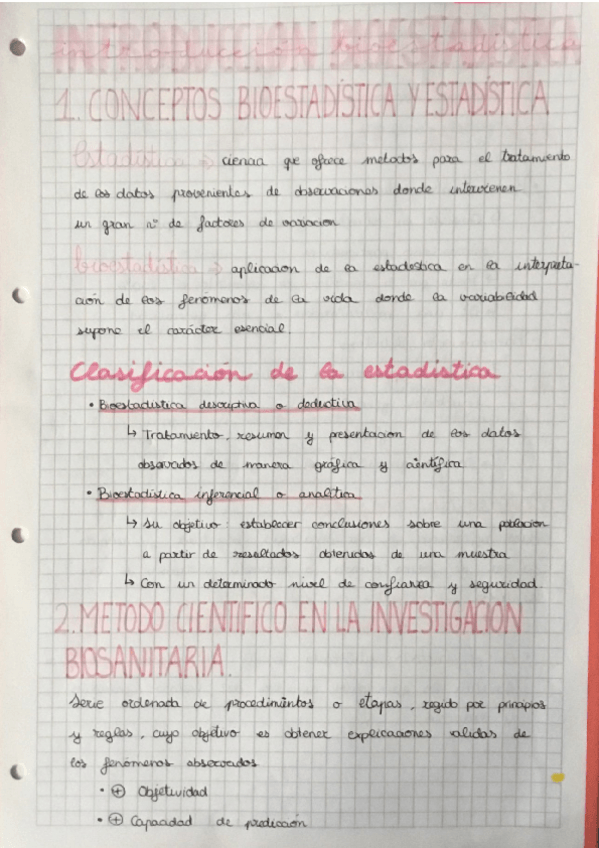 introducción bioestadística
1. CONCEPTOS BIOESTADÍSTICA Y ESTADÍSTICA
Estadística → ciencia que ofrece metodos para el tratamiento
de los datos provenientes de observaciones donde intervienen
un gran nº de factores de variacion
bioestadística → aplicacion de la estadestica en la interpreta-
ción de los fenómenos de la vida donde la variabilidad
supone el carácter esencial.
Clasificación de la estadística
• Bioestadistica descriptiva o deductiva
↳ Tratamiento, resumen y presentacion de los datos
observados de manera gráfica y científica
• Bioestadística inferencial o analítica
↳ Su objetivo: establecer conclusiones sobre una poblacion
a partir de resultados obtenidos de una muestra
↳ Con un determinado nivel de confianza y seguridad.
2. METODO CIENTIFICO EN LA INVESTIGACION
BIOSANITARIA.
Serie ordenada de procedimientos o etapas, regido por principios
y reglas, cuyo objetivo es obtener explicaciones validas de
los fenómenos observados
• ⊕ Objetividad
• ⊕ Capacidad de predicción